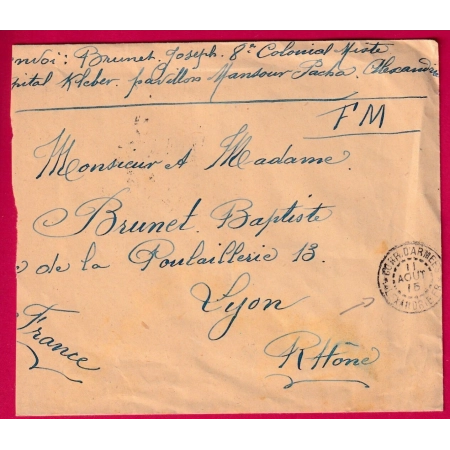 envoi: Brunet Joseph. 8e Colonial Mixte
pital Kleber. pavillon Mansour Pacha. Alexandrie
FM
Monsieur et Madame.
Brunet. Baptiste
de la Poulaillerie 13.
Lyon
Rhône
France
CORP. D'ARMEE
11
AOUT
15